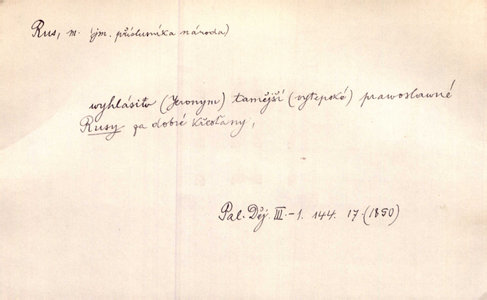 Rus, m. (jm. příslušníka národa)
wyhlásiw (Jeronym) tamější (vytepské) prawoslawné
Rusy za dobré křesťany,
Pal. Děj. III.-1. 144. 17. (1850)